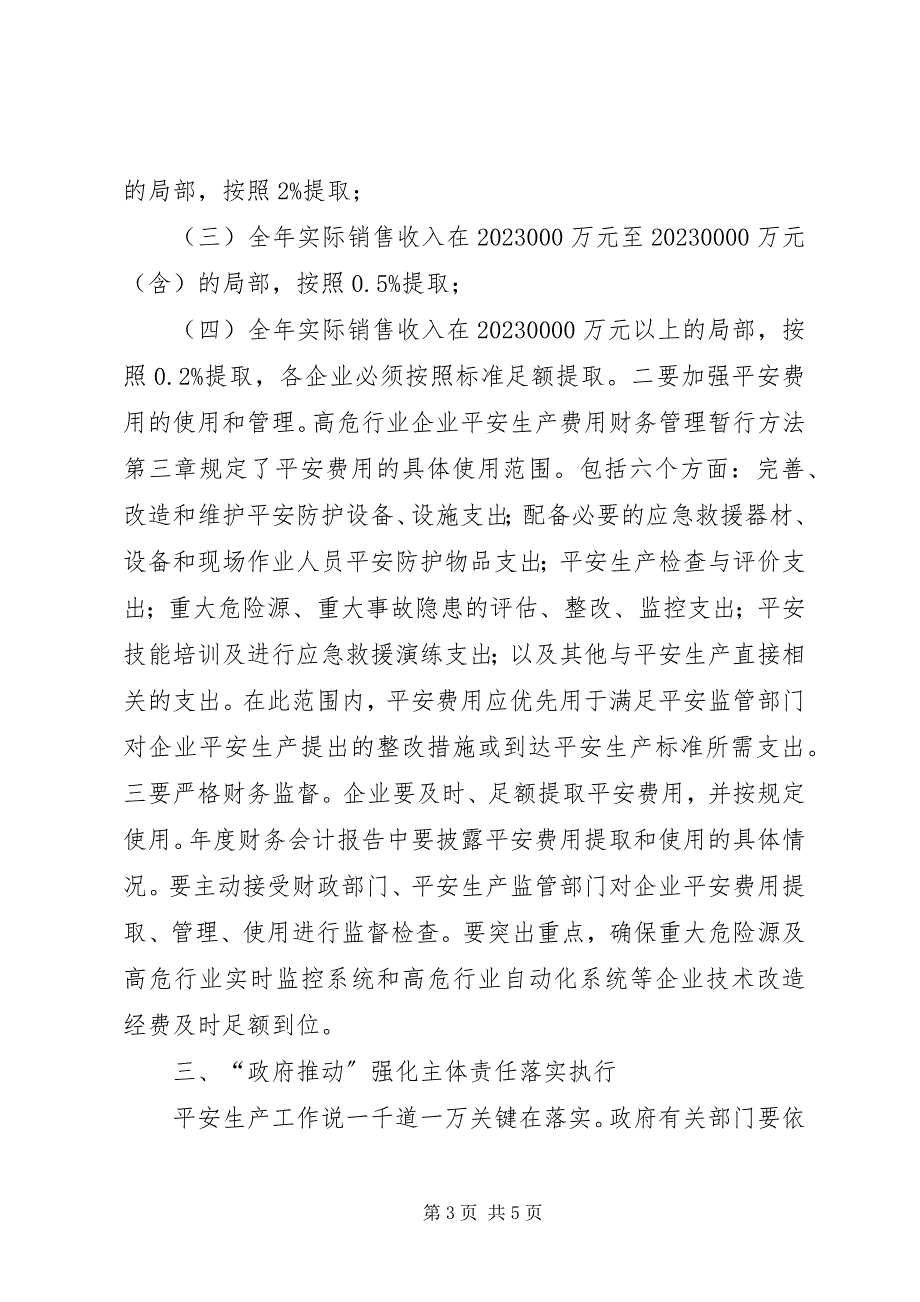 的局部，按照 2%提取；
（三）全年实际销售收入在 2023000 万元至 20230000 万元
（含）的局部，按照 0.5%提取；
（四）全年实际销售收入在 20230000 万元以上的局部，按
照 0.2%提取，各企业必须按照标准足额提取。二要加强平安费
用的使用和管理。高危行业企业平安生产费用财务管理暂行方法
第三章规定了平安费用的具体使用范围。包括六个方面：完善、
改造和维护平安防护设备、设施支出；配备必要的应急救援器材、
设备和现场作业人员平安防护物品支出；平安生产检查与评价支
出；重大危险源、重大事故隐患的评估、整改、监控支出；平安
技能培训及进行应急救援演练支出；以及其他与平安生产直接相
关的支出。在此范围内，平安费用应优先用于满足平安监管部门
对企业平安生产提出的整改措施或到达平安生产标准所需支出。
三要严格财务监督。企业要及时、足额提取平安费用，并按规定
使用。年度财务会计报告中要披露平安费用提取和使用的具体情
况。要主动接受财政部门、平安生产监管部门对企业平安费用提
取、管理、使用进行监督检查。要突出重点，确保重大危险源及
高危行业实时监控系统和高危行业自动化系统等企业技术改造
经费及时足额到位。
三、“政府推动〞强化主体责任落实执行
平安生产工作说一千道一万关键在落实。政府有关部门要依
第 3 页 共 5 页